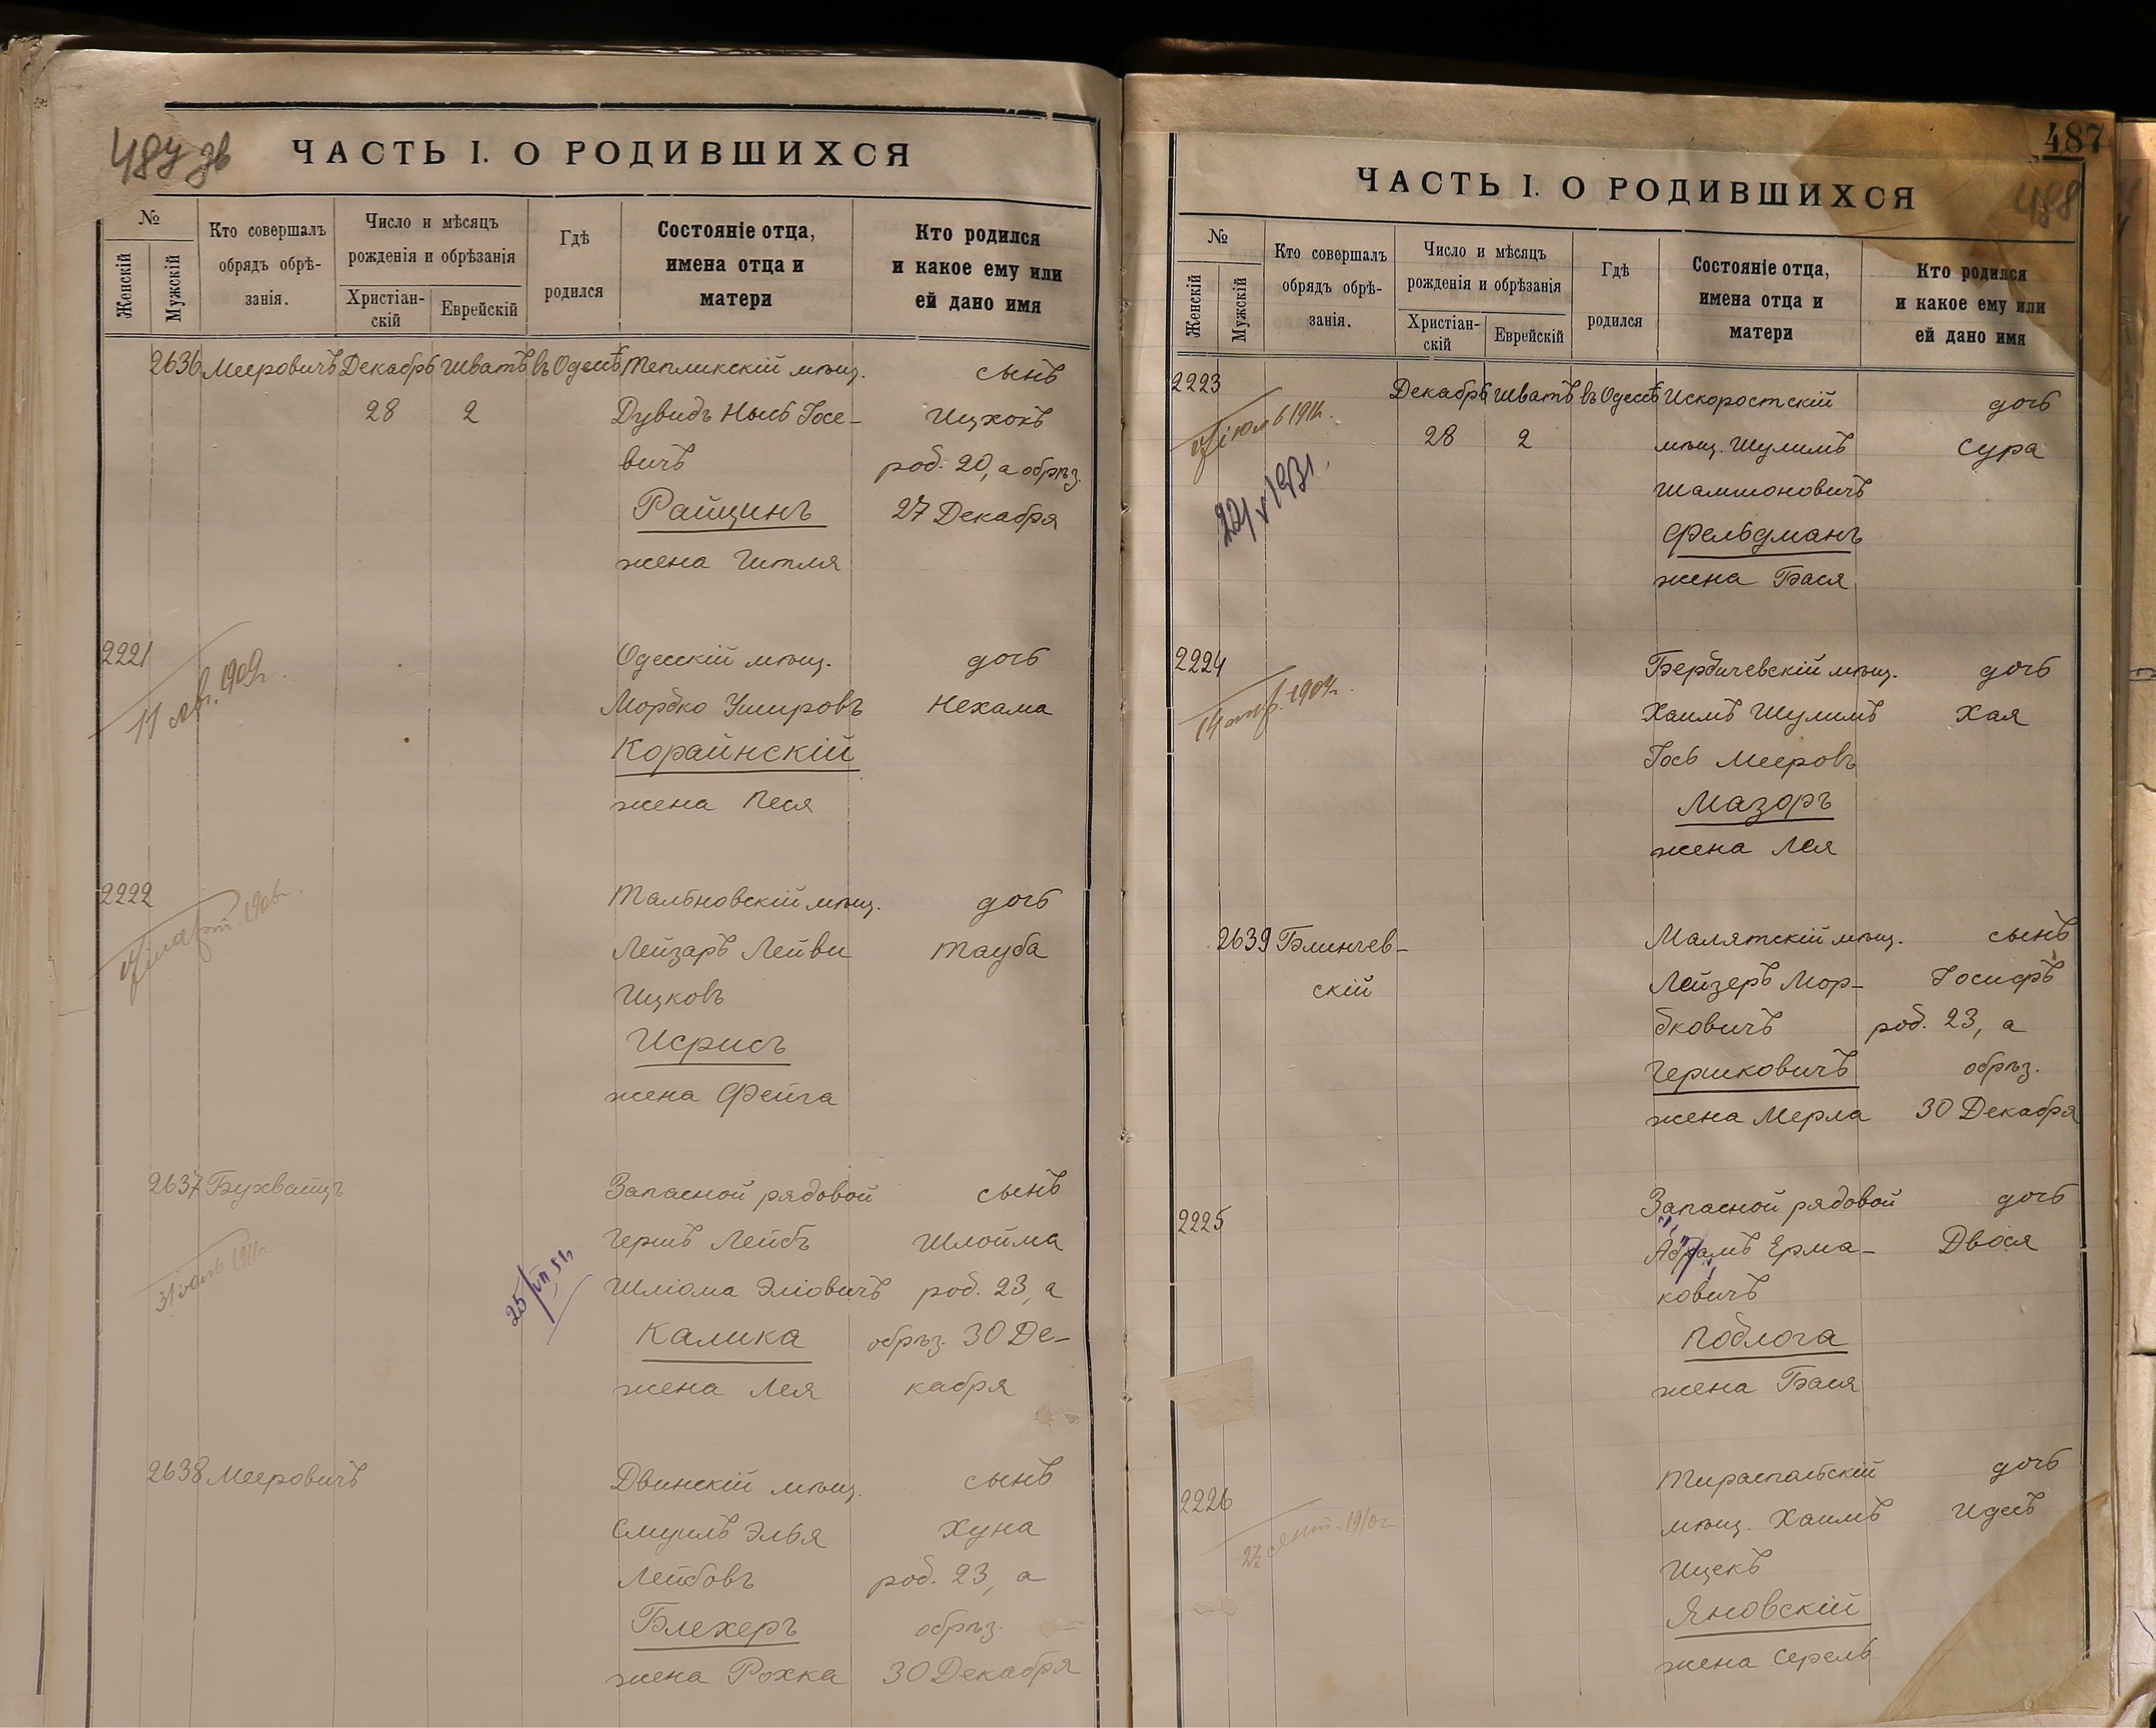 487 зв
ЧАСТЬ I. О РОДИВШИХСЯ
№
Женскій
Мужскій
Кто совершалъ
обрядъ обрѣ-
занія.
Число и мѣсяцъ
рожденія и обрѣзанія
Христіан-
скій
Еврейскій
Гдѣ
родился
Состояніе отца,
имена отца и
матери
Кто родился
и какое ему или
ей дано имя
2636 Мееровичъ Декабрь Шватъ въ Одессѣ Тепликскій мѣщ. сынъ
28 2 Дувидъ Иось Іосе- Ицхокъ
вичъ род. 20, а обрѣз.
Райцинъ 27 Декабря
жена Гитля
2221 Одесскій мѣщ. дочь
11 1909г. Мордко Ушеровъ Нехама
Корайнскій
жена Песя
2222 Тальновскій мѣщ. дочь
март. 1906г. Лейзаръ Лейви Тауба
Ицковъ
Исрисъ
жена Фейга
2637 Бухвайцъ Запасной рядовой сынъ
31 іюль 1911г. Гершъ Лейбъ Шлойма
25/VII 51г. Шліома Эліовичъ род. 23, а
Калика обрѣз. 30 Де-
жена Лея кабря
2638 Мееровичъ Двинскій мѣщ. сынъ
Смуилъ Элья Хуна
Лейбовъ род. 23, а
Блехеръ обрѣз.
жена Рохка 30 Декабря
487
488
ЧАСТЬ I. О РОДИВШИХСЯ
№
Женскій
Мужскій
Кто совершалъ
обрядъ обрѣ-
занія.
Число и мѣсяцъ
рожденія и обрѣзанія
Христіан-
скій
Еврейскій
Гдѣ
родился
Состояніе отца,
имена отца и
матери
Кто родился
и какое ему или
ей дано имя
2223 Декабрь Шватъ въ Одессѣ Искоростскій дочь
іюль 1911г. 28 2 мѣщ. Шулимъ Сура
22/V 1931. Шамшоновичъ
Фельдманъ
жена Бася
2224 Бердичевскій мѣщ. дочь
14 1904г. Хаимъ Шулимъ Хая
Іось Мееровъ
Мазоръ
жена Лея
2639 Блинчев- Малятскій мѣщ. сынъ
скій Лейзеръ Мор- Іосифъ
дковичъ род. 23, а
Гершковичъ обрѣз.
жена Мерла 30 Декабря
2225 Запасной рядовой дочь
Абрамъ Ерма- Двося
ковичъ
Подлога
жена Бася
2226 Тираспольскій дочь
сент. 1910г мѣщ. Хаимъ Идесъ
Ицекъ
Яновскій
жена Серель